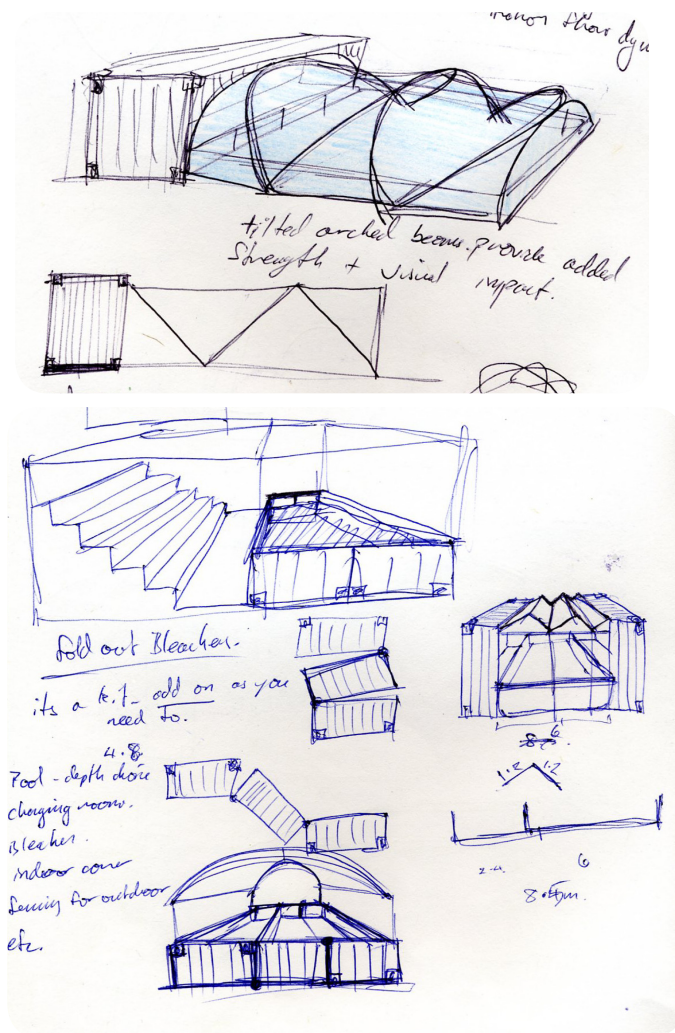 show dyn
tilted arched beams. provide added
Strength + visual impact.
fold out Bleacher.
its a kit add on as you
need to.
4.8
Pool - depth choice
changing rooms.
Bleacher.
indoor cover
fencing for outdoor
etc.
6
1.2 1.2
2.4
6
8.4m.